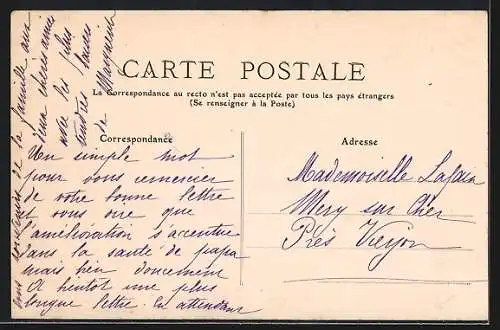 CARTE POSTALE
La Correspondance au recto n'est pas acceptée par tous les pays étrangers
(Se renseigner à la Poste)
Correspondance
Adresse
Un simple mot
pour vous remercier
de votre bonne lettre
et vous dire que
l'amélioration s'accentue
dans la santé de papa
mais bien doucement
A bientôt une plus
longue lettre. En attendant
souvenirs de la famille aux
deux chères amies
avec les plus
tendres baisers
de Marguerite
Mademoiselle
Mery sur Cher
Près Vierzon